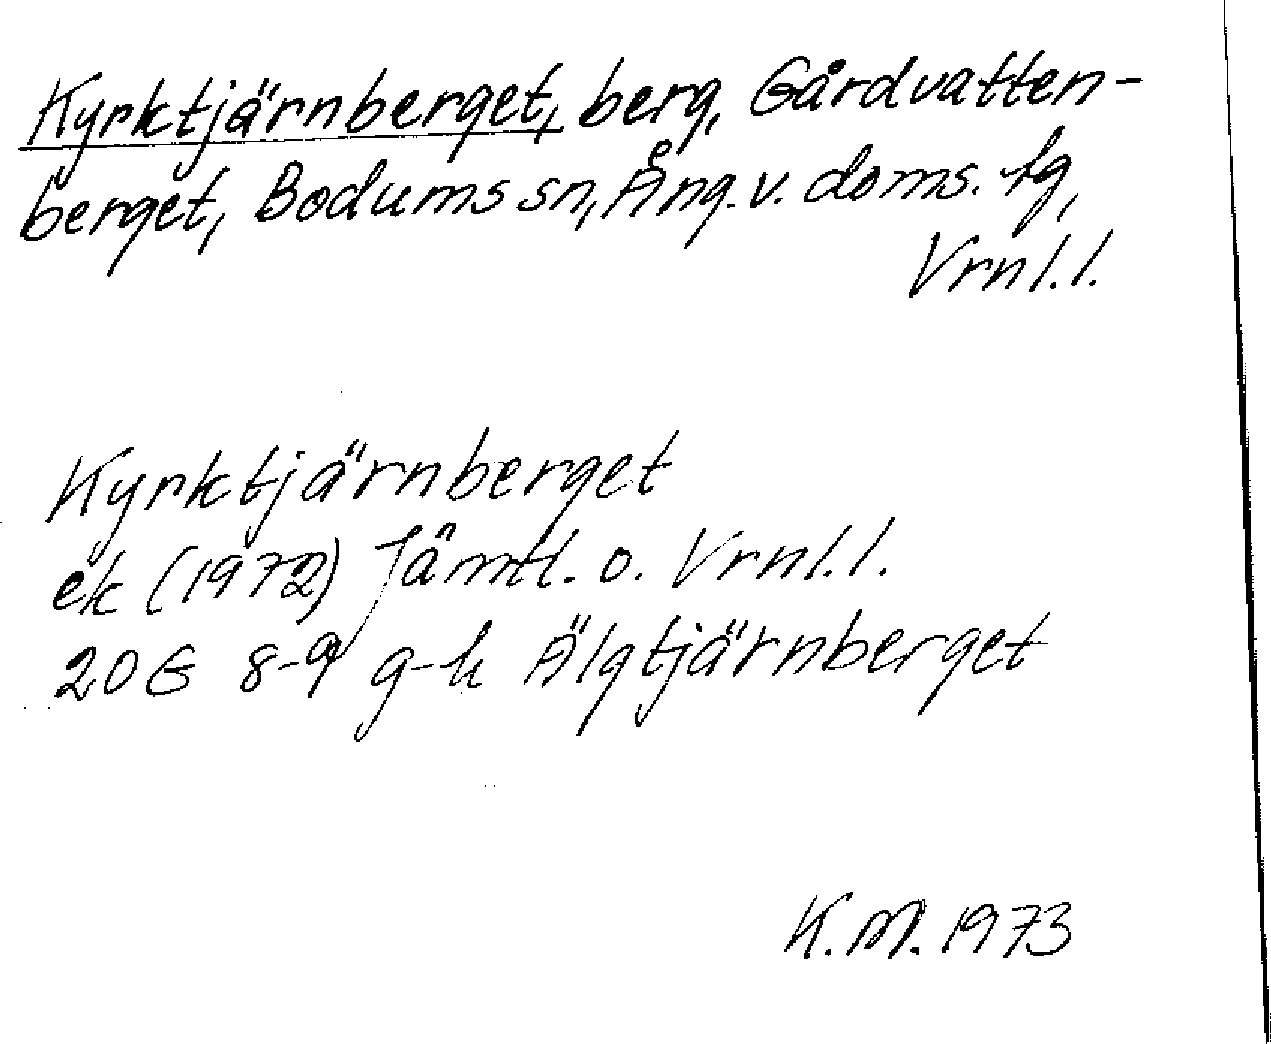 Kyrktjärnberget, berg, Gårdvatten-
berget, Bodums sn, Ång. v. doms. tg,
Vrnl.l.
Kyrktjärnberget
ek (1972) Jämtl. o. Vrnl.l.
20G 8-9 g-h Älgtjärnberget
K.M. 1973